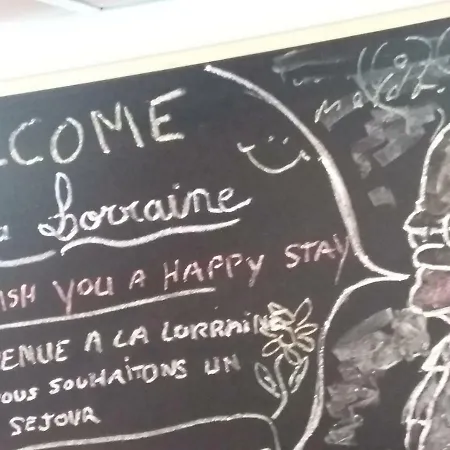 LCOME
Lorraine
ISH YOU A HAPPY STAY
ENUE A LA LORRAINE
OUS SOUHAITONS UN
SEJOUR